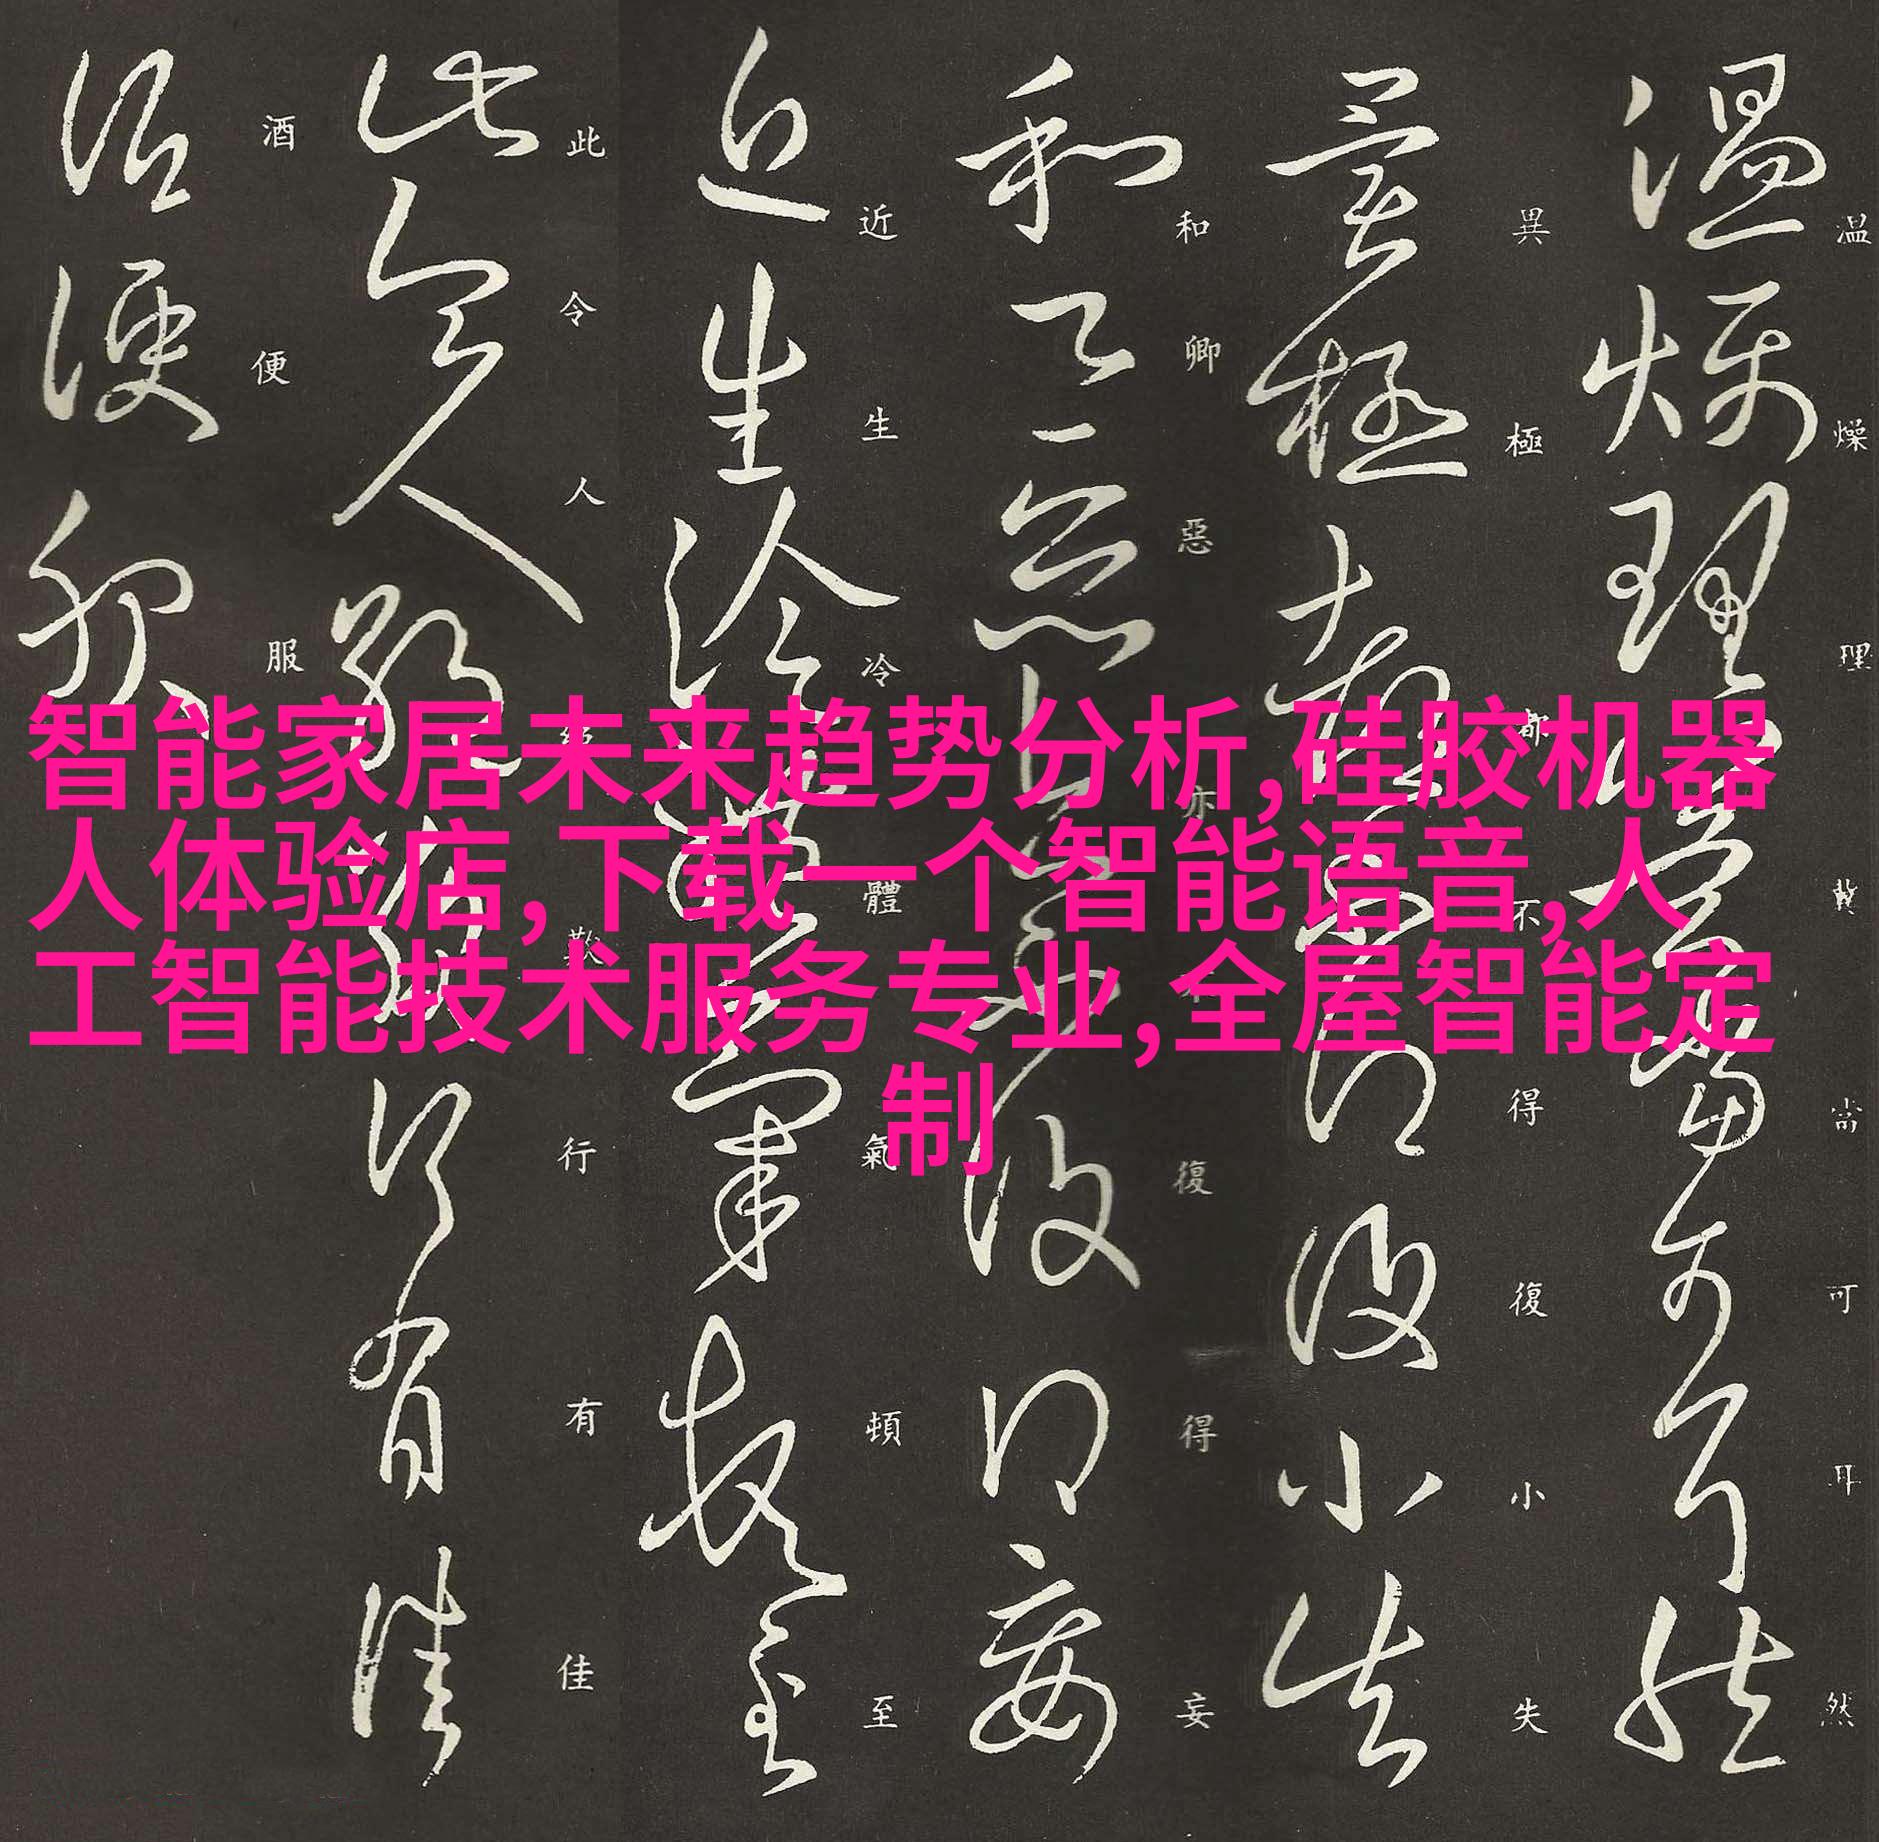 智能家居未来趋势分析,硅胶机器
人体验店,下载一个智能语音,人
工智能技术服务专业,全屋智能定
制
温燥理 冀當可耳然
異極都不得復小失
和卿惡亦不復得妄
近生冷體氣頓至
此令人絕歎行有佳
酒便服